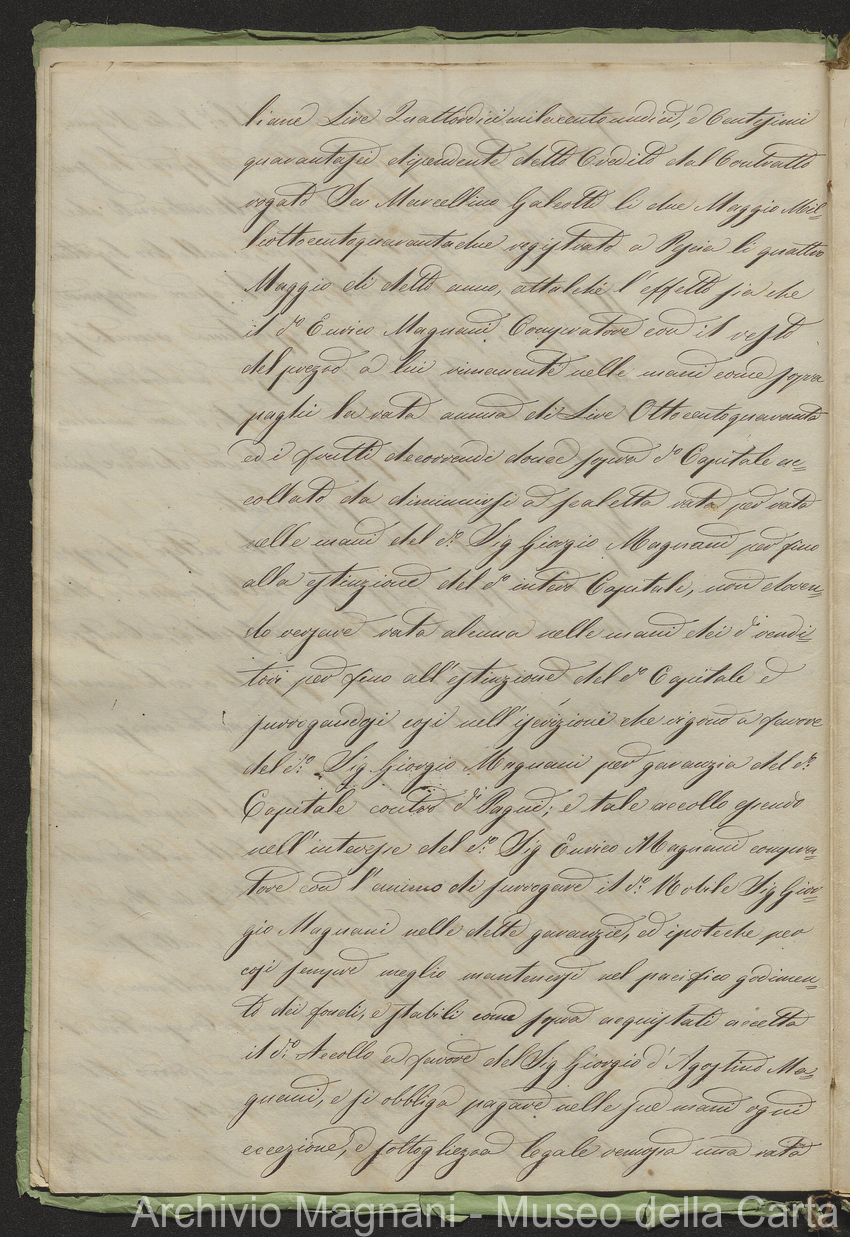 liane Lire Quattordicimilacentoundici, e Centesimi
quarantasei dipendente detto Credito dal Contratto
rogato Ser Marcellino Galeotti li due Maggio Mil=
leottocentoquarantadue registrato a Pescia li quattro
Maggio di detto anno, attalchè l'effetto sia che
il do Enrico Magnani Compratore con il resto
del prezzo a lui rimanente nelle mani come sopra
paghi la rata annua di Lire Ottocentoquaranta
ed i frutti decorrendi sopra do Capitale ac=
collato da diminuirsi a scaletta rata per rata
nelle mani del do Sig Giorgio Magnani per fino
alla estinzione del do intero Capitale, non doven=
do versare rata alcuna nelle mani dei di vendi=
tori per fino all'estinzione del do Capitale e
surrogandosi così nell'iscrizioni che vigono a favore
del do Sig Giorgio Magnani per garanzia del do
Capitale contro di Pagni; e tale accollo essendo
nell'interesse del do Sig Enrico Magnani compra=
tore con l'animo di surrogare il do Nobile Sig Gior=
gio Magnani nelle dette garanzie, ed ipoteche per
così sempre meglio mantenersi nel pacifico godimen=
to dei fondi, e stabili come sopra acquistati accetta
il do Accollo a favore del Sig Giorgio d'Agostino Ma=
gnani, e si obbliga pagare nelle sue mani ogni
eccezione, e sottigliezza legale remossa una rata
Archivio Magnani - Museo della Carta